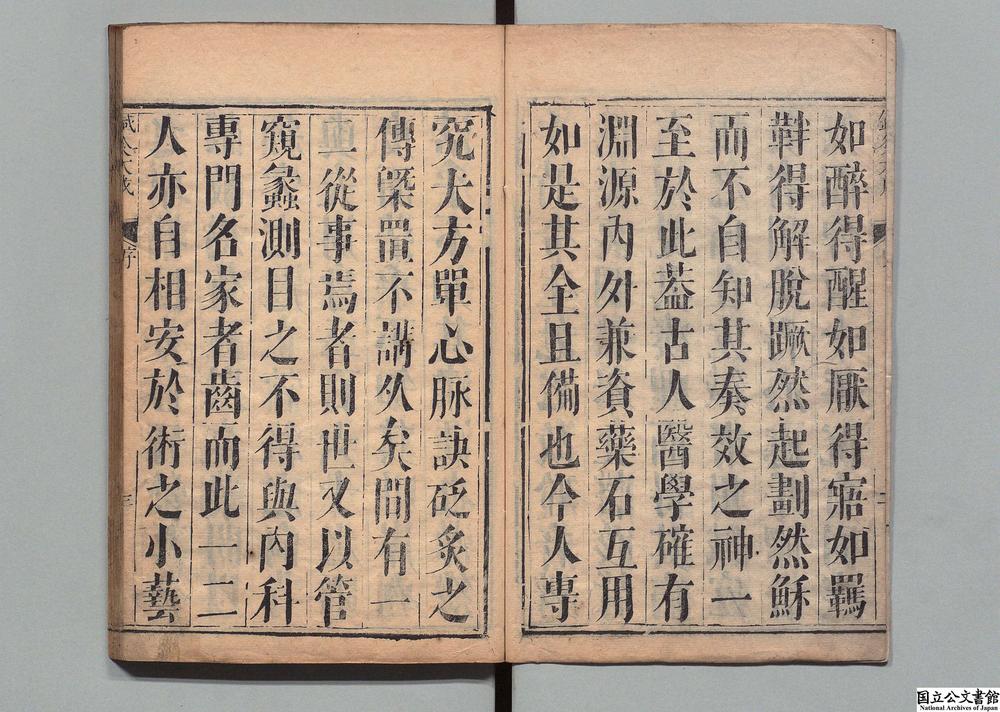 如醉得醒如厭得寤如羈
得解脫蹶然起劃然穌
而不自知其奏效之神一
至於此葢古人醫學確有
淵源內外兼資藥石互用
如是其全且備也今人專
究大方單心脉訣砭炙之
傳槩置不講久矣間有一
一從事焉者則世又以管
窺蠡測目之不得與內科
專門名家者齒而此一二
人亦自相安於術之小藝
序
三
国立公文書館
National Archives of Japan